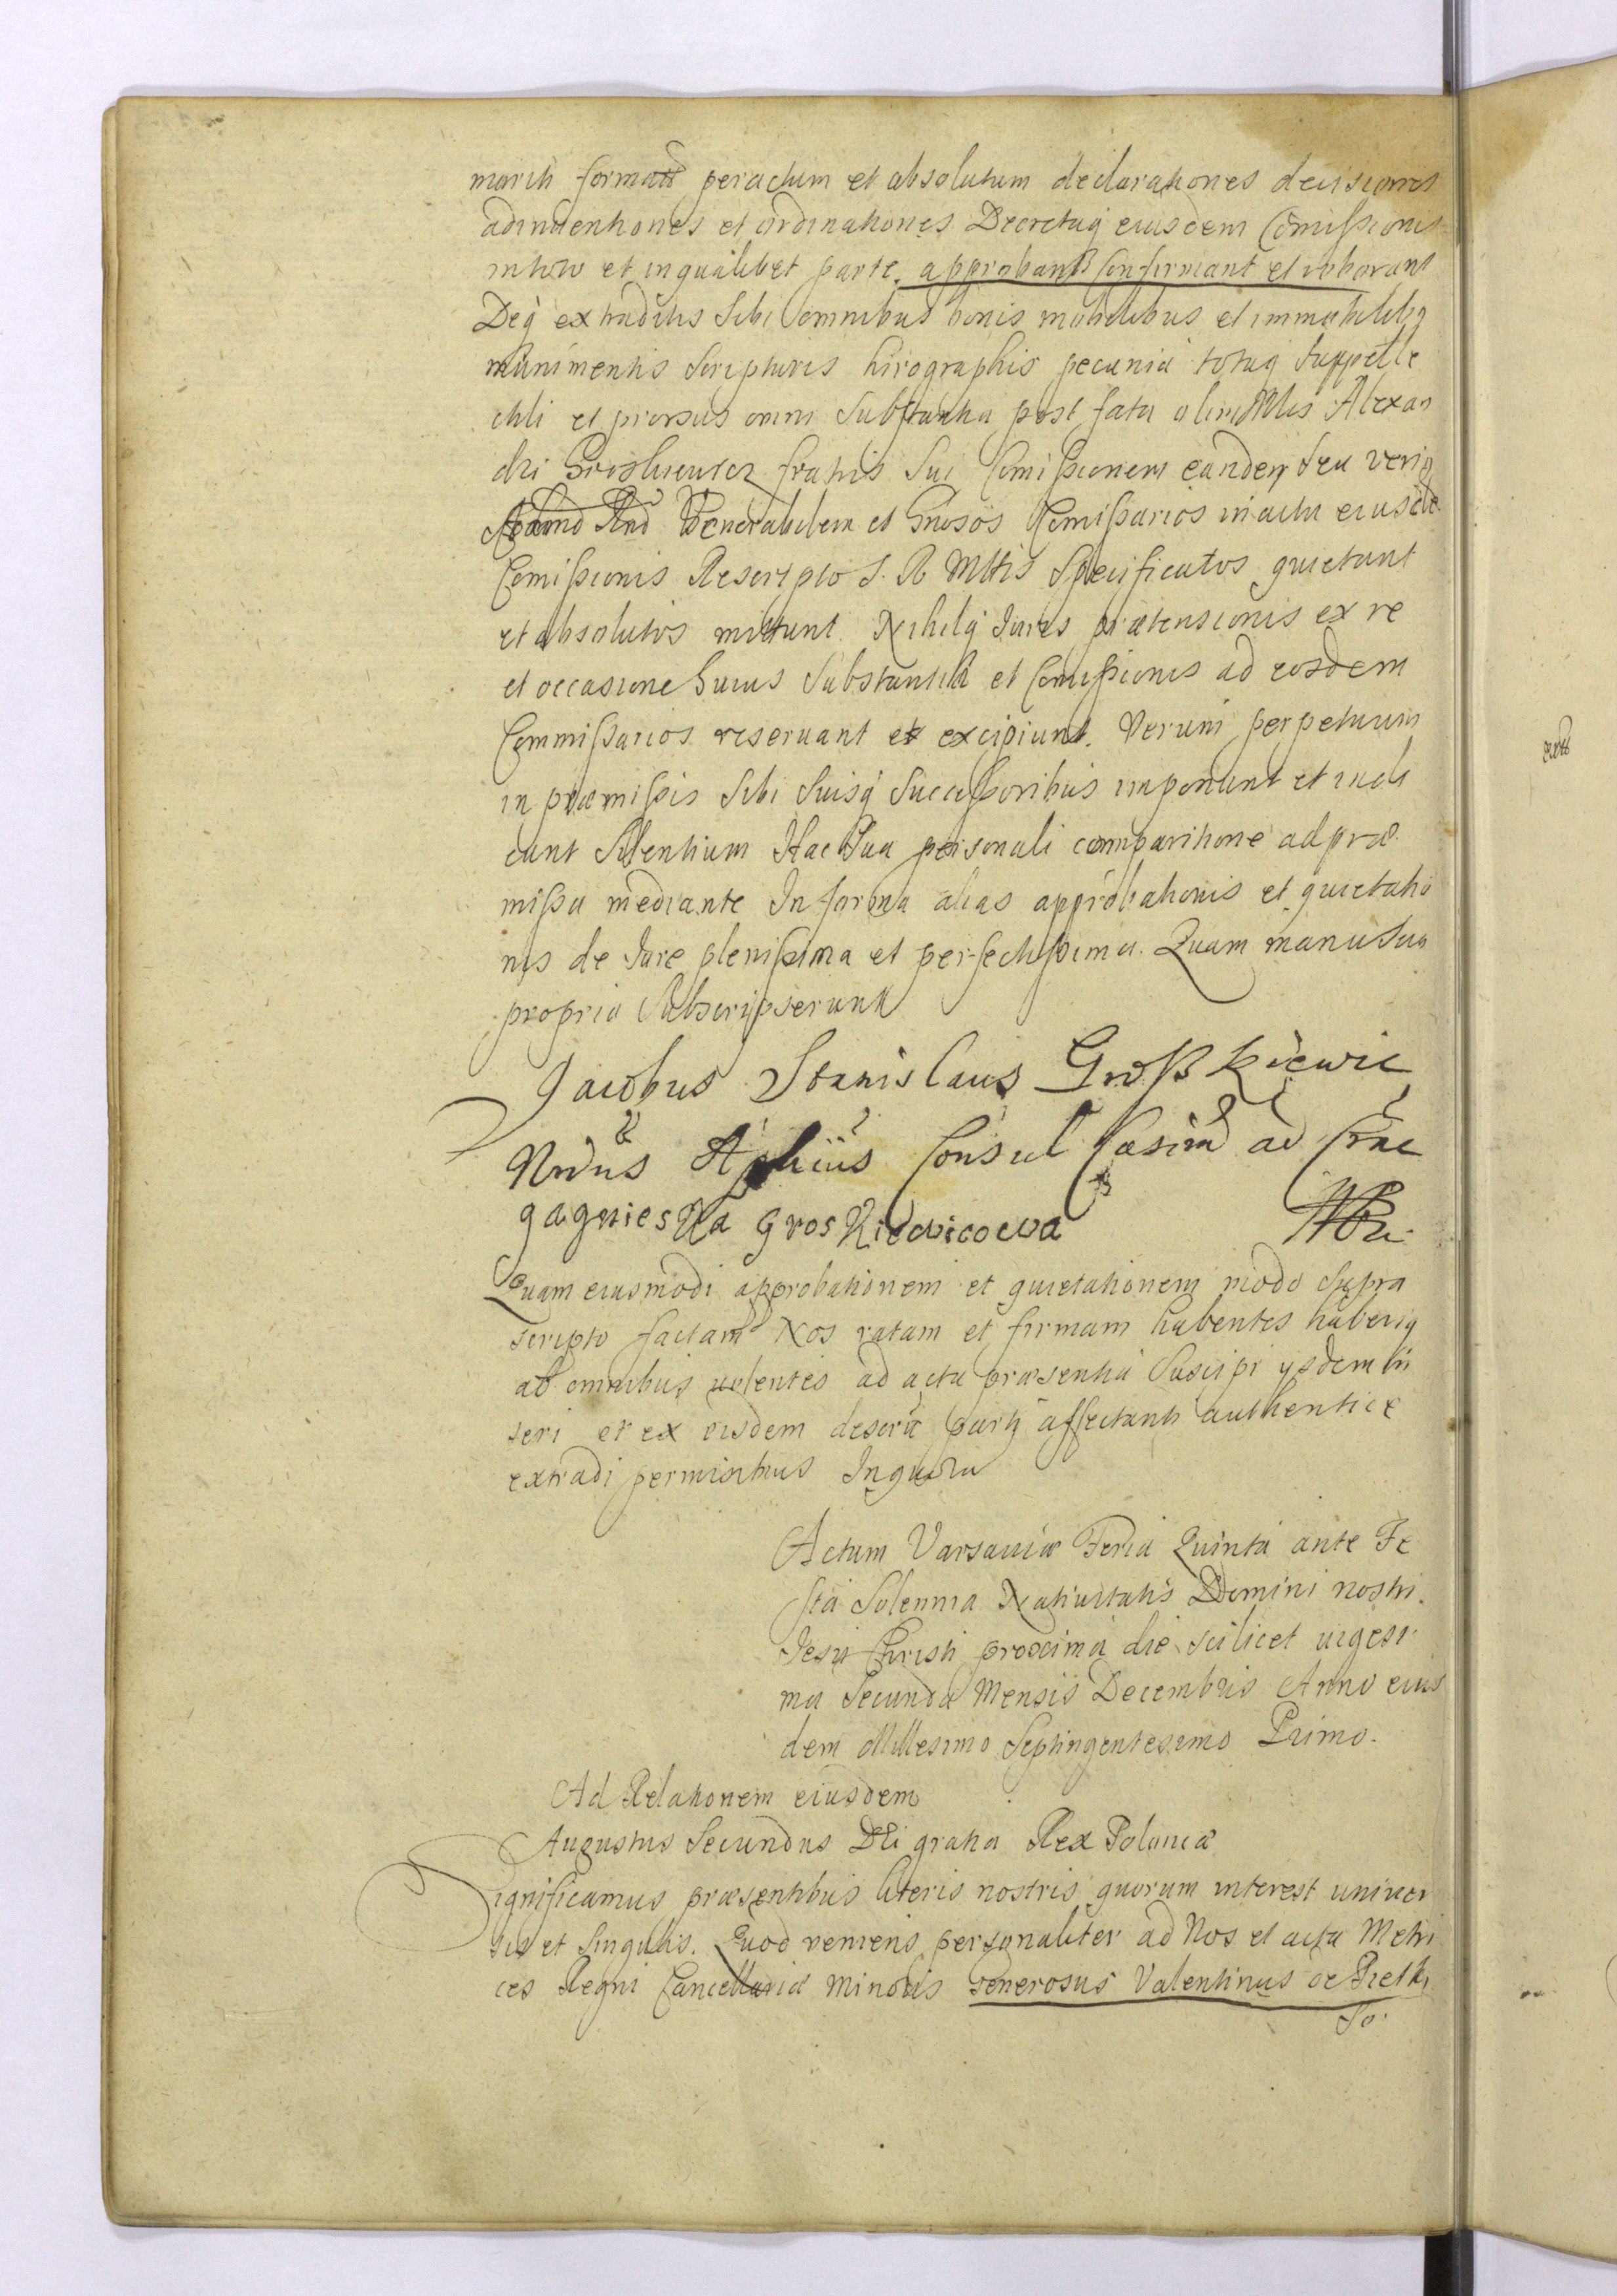 marih formatt peractum et absolutum declarationes decisiones
adinuentiones et ordinationes Decretuq eiusdem Comissionis
in toto et in qualibet parte. approbant confirmant et roborant
Deq extraditis Sibi omnibus bonis mobilibus et immobilibq
munimentis Scripturis hirographis pecunia totaq Suppelle
ctili et prorsus omni Substantia post fata olim Alexan
dri Groskiewicz fratris Sui Comissionem eandem Seu verius
Rnd Venerabilem et Gnosos Comissarios in actu eiusde
Comissionis Rescripto S. R. Mttis Specificatos quietant
et absolutos mittunt. Nihilq Iuris prætensionis ex re
et occasione huius Substantiæ et Comissionis ad eosdem
Commissarios reseruant et excipiunt. Verum perpetuum
in præmissis Sibi Suisq Successoribus imponunt et indi
cunt Silentium Hac Sua personali comparitione ad præ
missa mediante In forma alias approbationis et quietatio
nis de Iure plenissima et perfectissima. Quam manu Sua
propria Subscripserunt
Jacobus Stanislaus Großkiewic
Consul Casim ad Crac
gagnieska groskiewicowa
Quam eiusmodi approbationem et quietationem modo Supra
scripto factam Nos ratam et firmam habentes haberiq
ab omnibus uolentes ad acta præsentia Suscipi ysdem in
seri et ex eisdem descri parti affectanti authentice
extradi permisimus In quoru
Actum Varsauiæ Feria Quinta ante Fe
sta Solennia Natiuitatis Domini nostri
Iesu Christi proxima die scilicet uigesi
ma Secunda Mensis Decembris Anno eius
dem Millesimo Septingentesimo Primo.
Ad Relationem eiusdem
Augustus Secundus Dei gratia Rex Poloniæ
Significamus præsentibus literis nostris quorum interest uniuer
sis et singulis. Quod veniens personaliter ad Nos et acta Metri
ces Regni Cancellariæ Minoris Generosus Valentinus de Pretk
So.